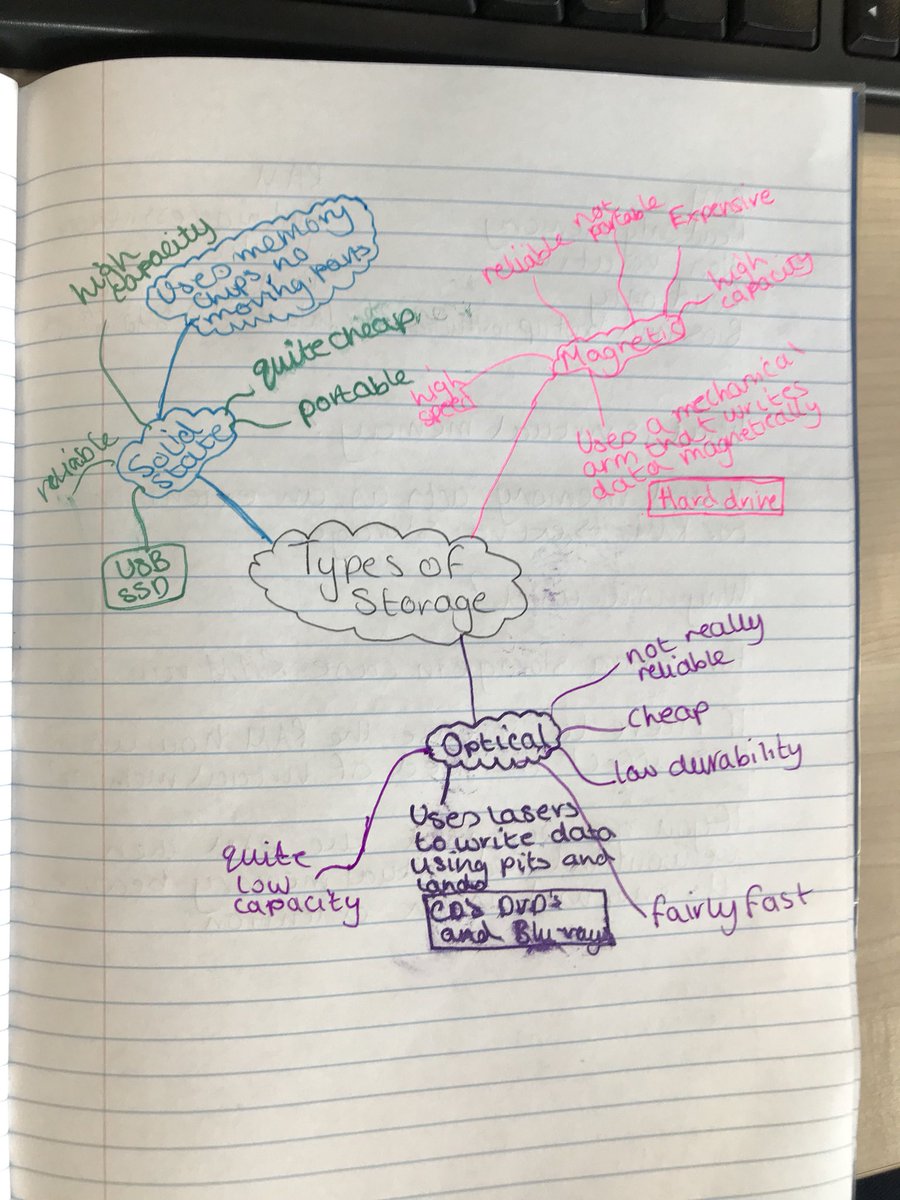 high
capacity
Uses memory
chips, no
moving parts
quite cheap
portable
reliable
Solid
State
USB
SSD
reliable
not
portable
Expensive
high
capacity
Magnetic
high
speed
Uses a mechanical
arm that writes
data magnetically
Hard drive
Types of
Storage
not really
reliable
cheap
low durability
Optical
Uses lasers
to write data
using pits and
lands
CD's DVD's
and Blu-rays
quite
low
capacity
fairly fast